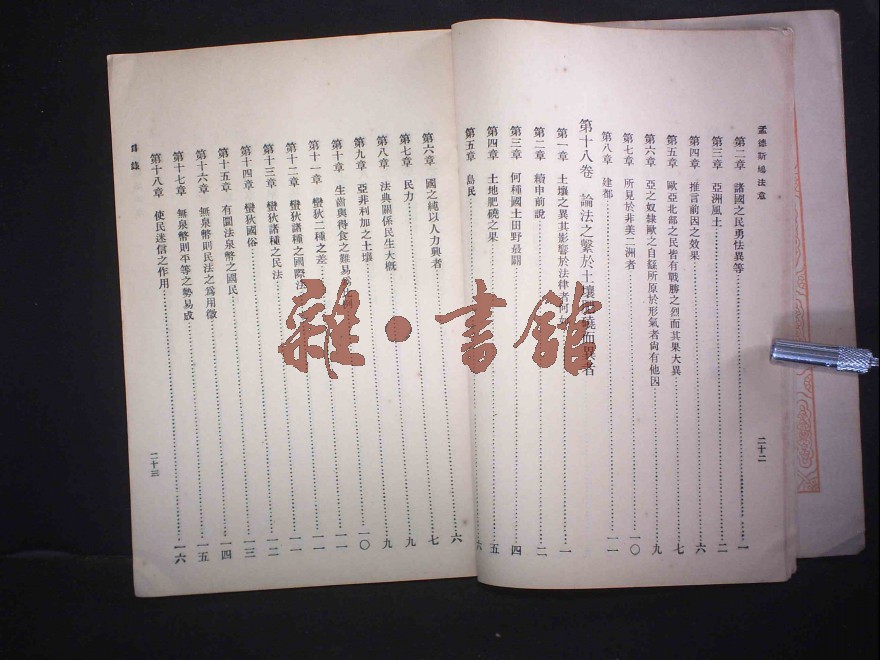 孟德斯鳩法意
第二章 諸國之民勇怯異等 一
第三章 亞洲風土 二
第四章 推言前因之效果 六
第五章 歐亞北部之民皆有戰勝之烈而其果大異 七
第六章 亞之奴隸歐之自繇所原於形氣者尚有他因 九
第七章 所見於非美二洲者 一〇
第八章 建都 一一
第十八卷 論法之繫於土壤肥磽而異者
第一章 土壤之異其影響於法律者何如 一
第二章 續申前說 二
第三章 何種國土田野最闢 四
第四章 土地肥磽之果 五
第五章 島民 六
二十二
第六章 國之純以人力興者 六
第七章 民力 七
第八章 法典關係民生大概 九
第九章 亞非利加之土壤 九
第十章 生齒與得食之難易 一〇
第十一章 蠻狄二種之差 一一
第十二章 蠻狄諸種之國際法 一一
第十三章 蠻狄諸種之民法 一二
第十四章 蠻狄國俗 一三
第十五章 有圜法泉幣之國民 一四
第十六章 無泉幣則民法之為用微 一五
第十七章 無泉幣則平等之勢易成
第十八章 使民迷信之作用 一六
目錄
二十三
雜·書館